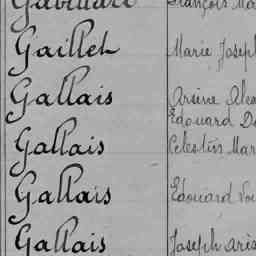 Gaillet Marie Joseph
Gallais Arsène
Edouard
Gallais Célestin Mar
Gallais Edouard
Gallais Joseph Aris